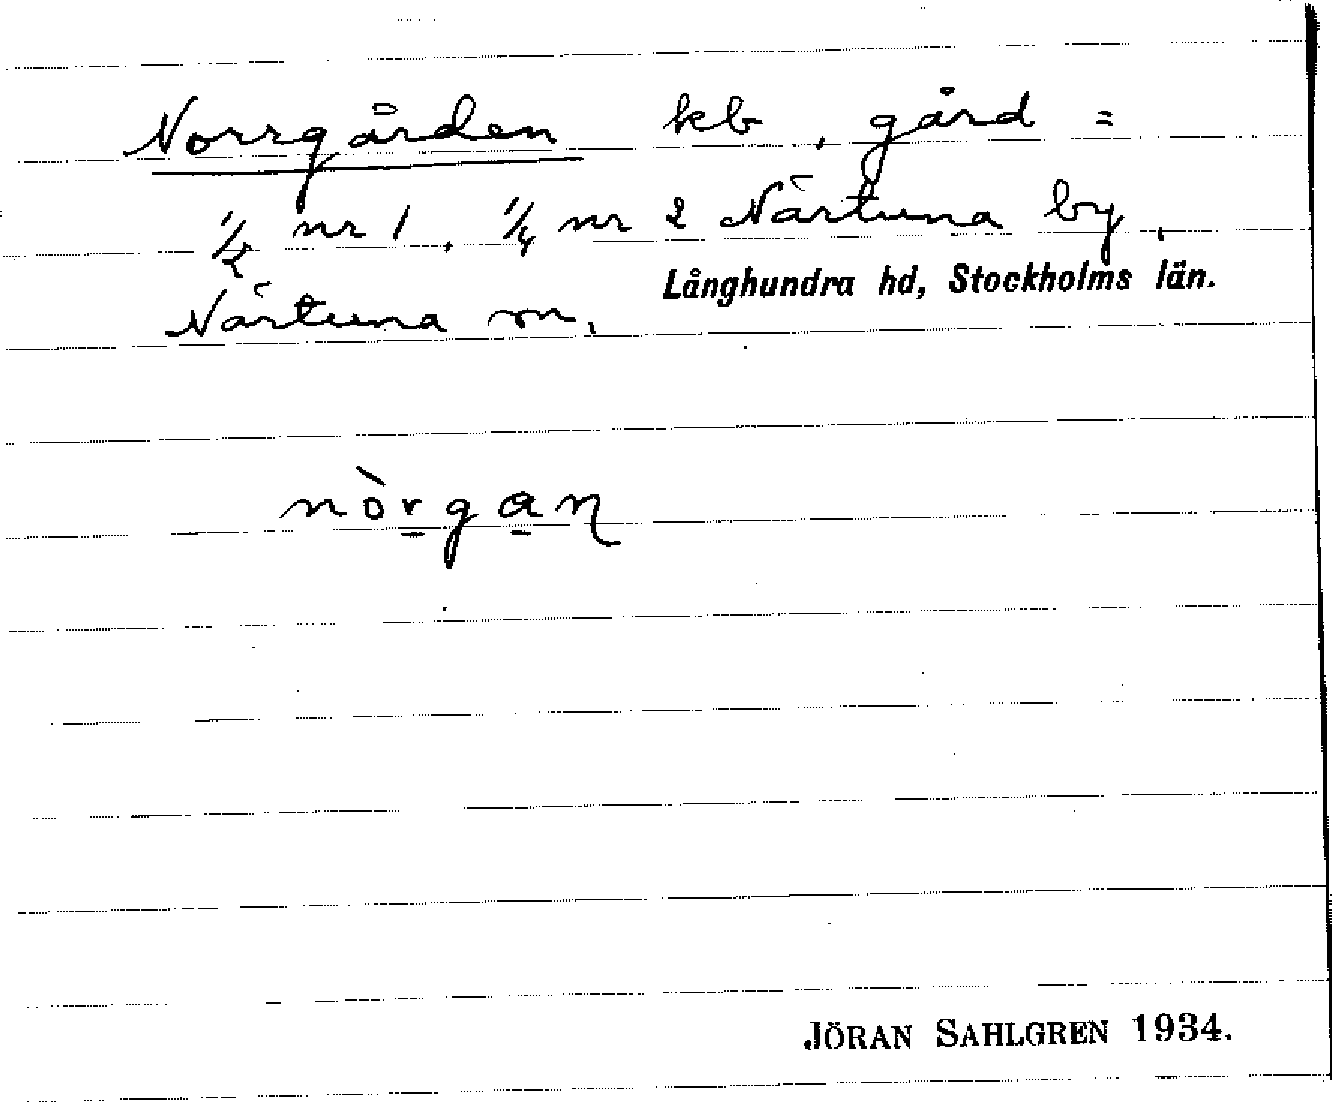 Norrgården kb, gård =
1/2 nr 1, 1/4 nr 2 Närtuna by,
Långhundra hd, Stockholms län.
Närtuna sn.
nòrgaɳ
JÖRAN SAHLGREN 1934.